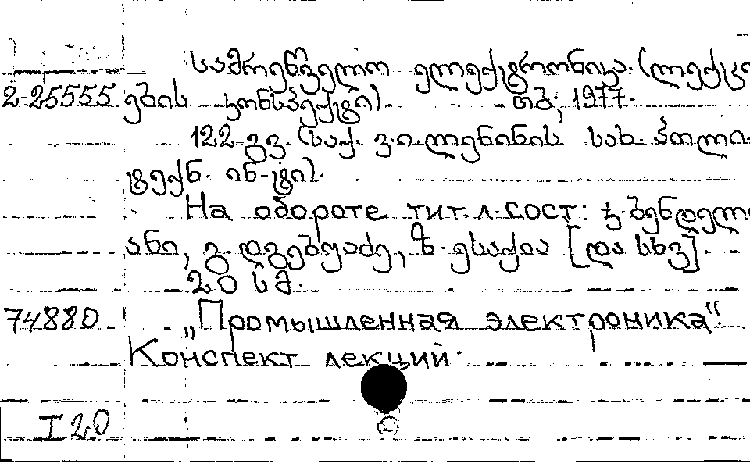 სამრეწველო ელექტრონიკა (ლექცი
2-25555 ების კონსპექტი) თბ, 1977.
122 გვ. (საქ. ვ.ი.ლენინის სახ. პოლი
ტექნ. ინ-ტი).
На обороте тит.л. сост: ჯ.ბენდელი
ანი, გ. დგებუაძე, ზ. ესაქია [და სხვ].
20 სმ.
74880 „Промышленная электроника“.
Конспект лекций.
I 20